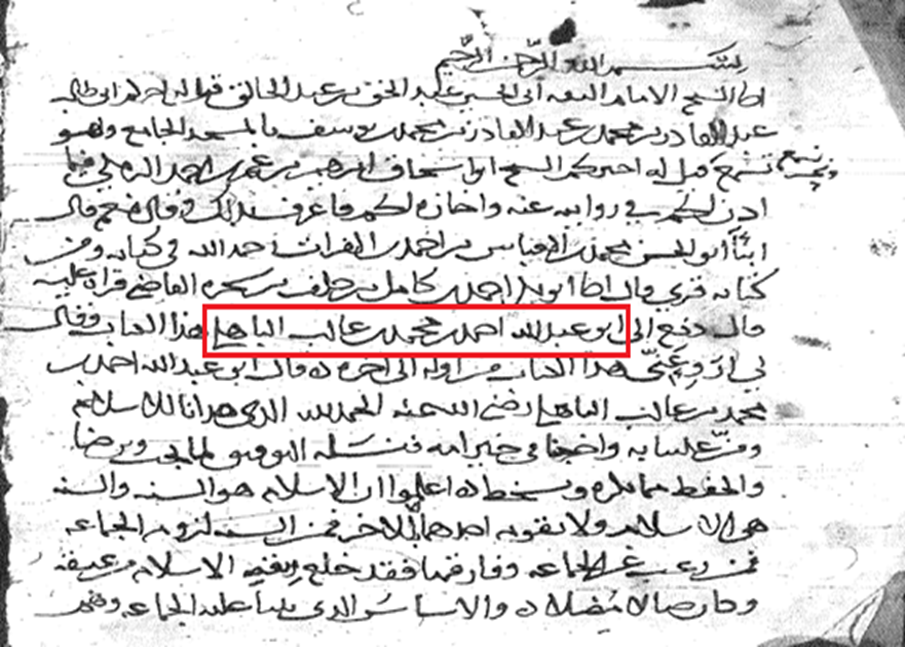 بسم الله الرحمن الرحيم
انا الشيخ الامام الثقه ابي الحسين عبد الحق بن عبد الخالق قيل له اخبركم ابو طالب
عبد القادر بن محمد بن عبد القادر بن محمد بن يوسف بالمسجد الجامع وهو
يسمع قيل له اخبركم الشيخ ابو اسحاق ابرهيم بن عمر بن احمد البرمكي فيما
ونحن نسمع
اذن لكم في روايته عنه واجازه لكم فاعرف بذلك وقال نعم قال
انبأ ابو الحسن محمد بن العباس بن احمد بن الفرات رحمه الله في كتابه ومن
كتابه قري قال انا ابو بكر احمد بن كامل بن خلف بن شجره القاضي قراة عليه
قال دفع الي ابو عبد الله احمد بن محمد بن غالب الباهلي هذا الكتاب وقال
لي ارو عني هذا الكتاب من اوله الى اخره ه قال ابو عبد الله احمد بن
محمد بن غالب الباهلي رضي الله عنه الحمد لله الذي هدانا للاسلام
ومن علينا به واخرجنا في خير امه فنسئله التوفيق لما يحب ويرضا
والحفظ مما يكره ويسخط ه اعلموا ان الاسلام هو السنه والسنه
هي الاسلام ولا يقوم احدهما الا بالاخر فمن السنه لزوم الجماعه
فمن رغب عن الجماعه وفارقها فقد خلع ربقه الاسلام من عنقه
وكان ضالا مضلا ه والاساس الذي بينا عليه الجماعه وهم